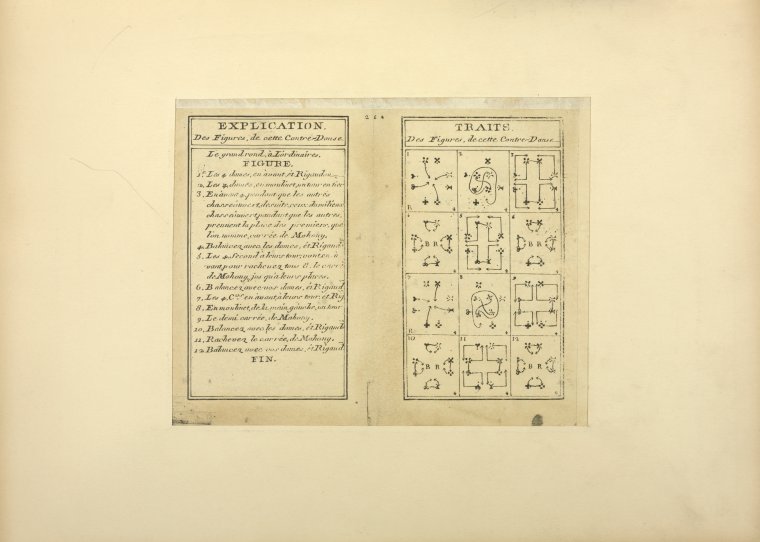 264
EXPLICATION.
Des Figures, de cette Contre-Danse.
Le grand rond, à L'ordinaires.
FIGURE.
1. Les 4 dames, en avant, et Rigaudon
2. Les 4 dames, en moulinet, un tour entier
3. En avant 4, pendant que les autres
chassent ouvert, de suite, ceux du milieux
chassent ouvert, pendant que les autres,
prennent la place des premiers, que
l'on nomme, carrée de Mahony.
4. Balancez avec les dames, et Rigaud
5. Les 4 Second à leurs tour, vont en a
vant pour rachevez tous 8. le carré
de Mahony, jus qu'a leurs places.
6. Balancez avec vos dames, et Rigaud
7. Les 4 C. en avant à leurs tour. et Rig
8. En moulinet, de la main gauche, un tour
9. Le demi carrée, de Mahony.
10. Balancez avec les dames, et Rigaud
11. Rachevez le carrée, de Mahony.
12. Balancez avec vos dames, et Rigaud.
FIN.
TRAITS.
Des Figures, de cette Contre-Danse
1 2 3
R 4 4 4
4 5 6
B R B R
7 8 9
R
10 11 12
B R B R